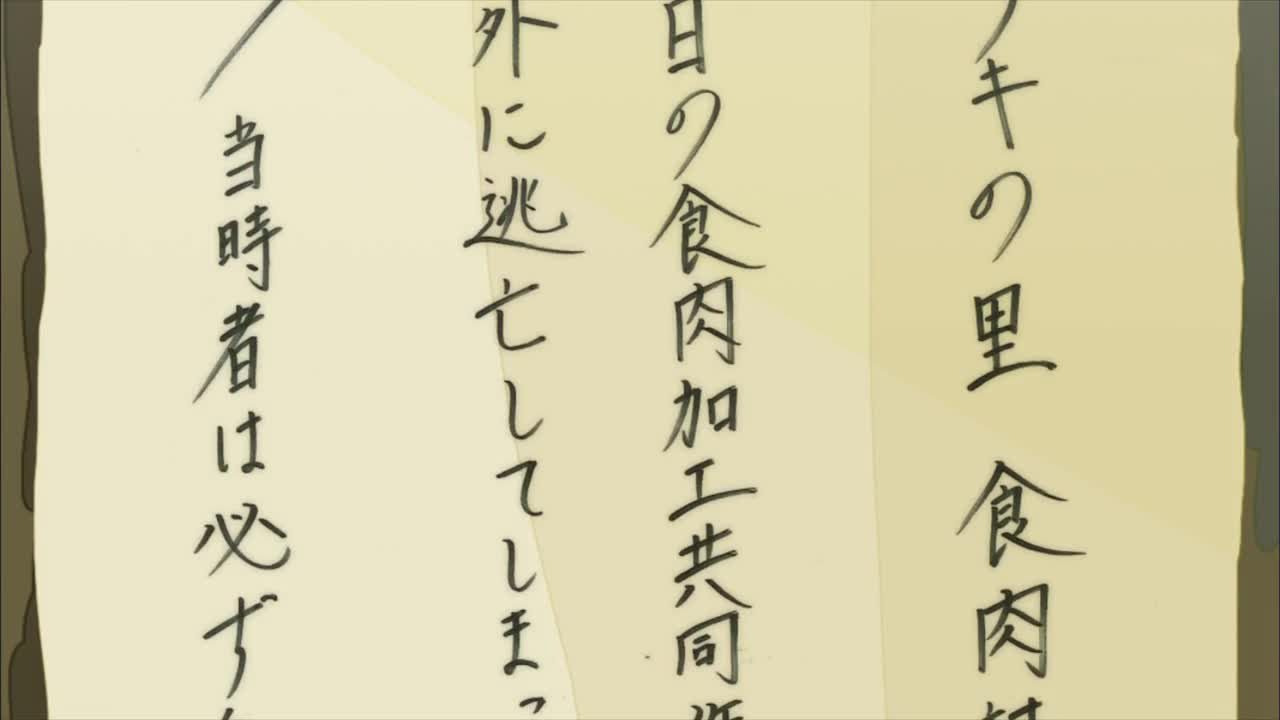 キの里 食肉
日の食肉加工共同
外に逃亡してしま
当時者は必ず